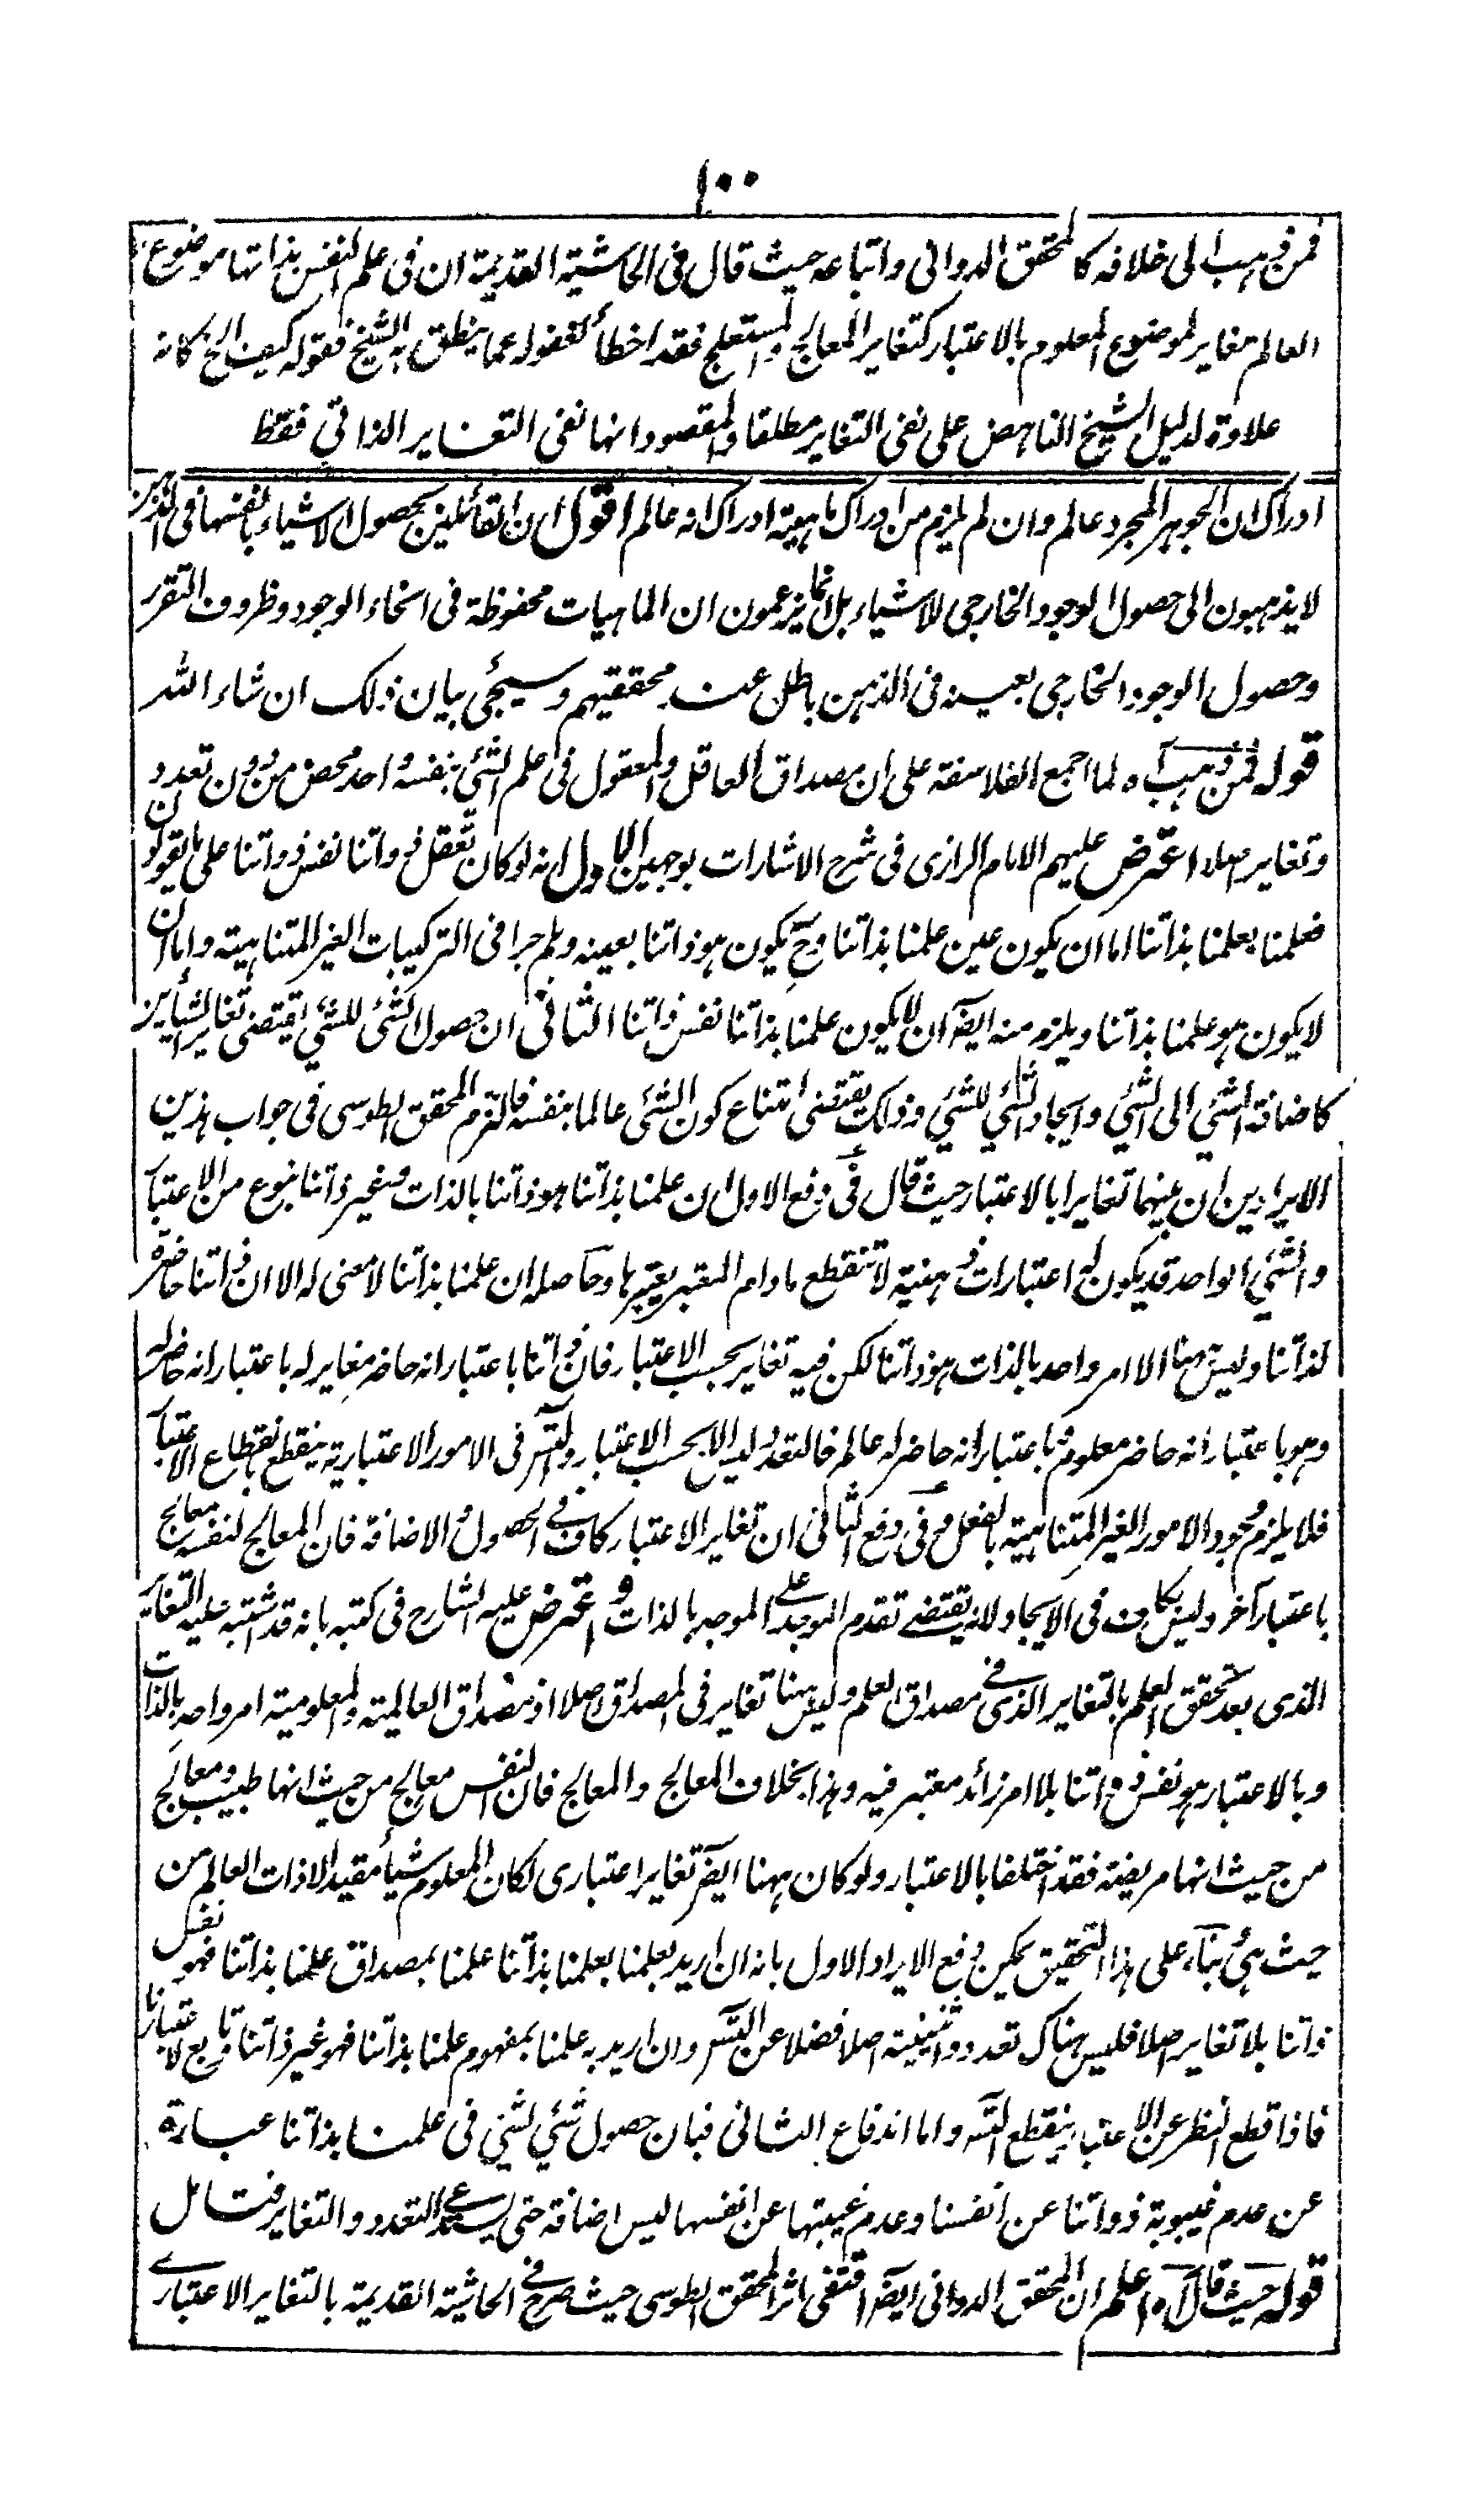 ١٠٠
فمن ذهب الى خلافه كالمحقق الدوانى واتباعه حيث قال فى الحاشية القديمة ان فى علم النفس بذاتها موضوع
العالم مغاير لموضوع المعلوم بالاعتبار كتغاير المعالج والمستعلج فقد اخطأ لغفوله عما ينطق به الشيخ فقوله كيف الخ كانه
علاوة لدليل الشيخ الناهض على نفى التغاير مطلقا والمقصود انها نفى التغاير الذاتي فقط
ادراك ان الجوهر المجرد عالم وان لم يلزم من ادراك ماهيته ادراك انه عالم اقول ان القائلين بحصول الاشياء بانفسها فى الذهن
لا يذهبون الى حصول الوجود الخارجى للاشياء بل انما يزعمون ان الماهيات محفوظة فى انحاء الوجود وظروف التقرر
وحصول الوجود الخارجى بعينه فى الذهن باطل عند محققيهم وسيجئ بيان ذلك ان شاء الله
قوله فمن ذهب آه لما اجمع الفلاسفة على ان مصداق العاقل والمعقول فى علم الشئ بنفسه واحد محض من دون تعدد
وتغاير اصلا اعترض عليهم الامام الرازى فى شرح الاشارات بوجهين الاول انه لو كان تعقل ذواتنا نفس ذواتنا على ما يقولون
فعلمنا بعلمنا بذاتنا اما ان يكون عين علمنا بذاتنا وح يكون هو ذاتنا بعينه وهلم جرا فى التركيبات الغير المتناهية واما ان
لا يكون هو علمنا بذاتنا ويلزم منه ايضا ان لا يكون علمنا بذاتنا نفس ذاتنا الثانى ان حصول الشئ للشئ يقتضى تغاير الشيأين
كاضافة الشئ الى الشئ وايجاد الشئ للشئ وذلك يقتضى امتناع كون الشئ عالما بنفسه فالتزم المحقق الطوسى فى جواب هذين
الايرادين ان بينهما تغايرا بالاعتبار حيث قال فى دفع الاول ان علمنا بذاتنا هو ذاتنا بالذات وغير ذاتنا بنوع من الاعتبار
والشئ الواحد قد يكون له اعتبارات ذهنية لا تنقطع ما دام المعتبر يعتبرها وحاصله ان علمنا بذاتنا لا معنى له الا ان ذاتنا حاضرة
لذاتنا وليس هنا الا امر واحد بالذات هو ذاتنا لكن فيه تغاير بحسب الاعتبار فان ذاتنا باعتبار انه حاضر مغاير له باعتبار انه حاضر له
وهو باعتبار انه حاضر معلوم وباعتبار انه حاضر له عالم فالتعدد ليس الا بحسب الاعتبار والتس فى الامور الاعتبارية ينقطع بانقطاع الاعتبار
فلا يلزم وجود الامور الغير المتناهية بالفعل وفى دفع الثانى ان تغاير الاعتبار كاف فى الحصول والاضافة فان المعالج لنفسه معالج
باعتبار آخر وليس بكاف فى الايجاد لانه يقتضى تقدم الموجد على الموجد بالذات واعترض عليه الشارح فى كتبه بانه قد اشتبه عليه التغاير
الذى بعد تحقق العلم بالتغاير الذى فى مصداق العلم وليس هنا تغاير فى المصداق اصلا اذ مصداق العالمية والمعلومية امر واحد بالذات
وبالاعتبار هو نفس ذاتنا بلا امر زائد معتبر فيه وهذا بخلاف المعالج والمعالج فان النفس معالج من حيث انها طبيب ومعالج
من حيث انها مريضة فقد اختلفا بالاعتبار ولو كان ههنا ايضا تغاير اعتبارى لكان المعلوم شيأ مقيدا لا ذات العالم من
حيث هى بناء على هذا التحقيق يمكن دفع الايراد الاول بانه ان اريد بعلمنا بعلمنا بذاتنا علمنا بمصداق علمنا بذاتنا فهو نفس
ذاتنا بلا تغاير اصلا فليس هناك تعدد واثنينية اصلا فضلا عن التس وان اريد به علمنا بمفهوم علمنا بذاتنا فهو غير ذاتنا وتابع لاعتبارنا
فاذا قطع النظر عن الاعتبار ينقطع التس واما اندفاع الثانى فبان حصول شئ لشئ فى علمنا بذاتنا عبارة
عن عدم غيبوبة ذواتنا عن انفسنا وعدم غيبتها عن انفسها ليس اضافة حتى يستدعى التعدد والتغاير فتامل
قوله حيث قال آه اعلم ان المحقق الدوانى ايضا اقتفى اثر المحقق الطوسى حيث صرح فى الحاشية القديمة بالتغاير الاعتبارى